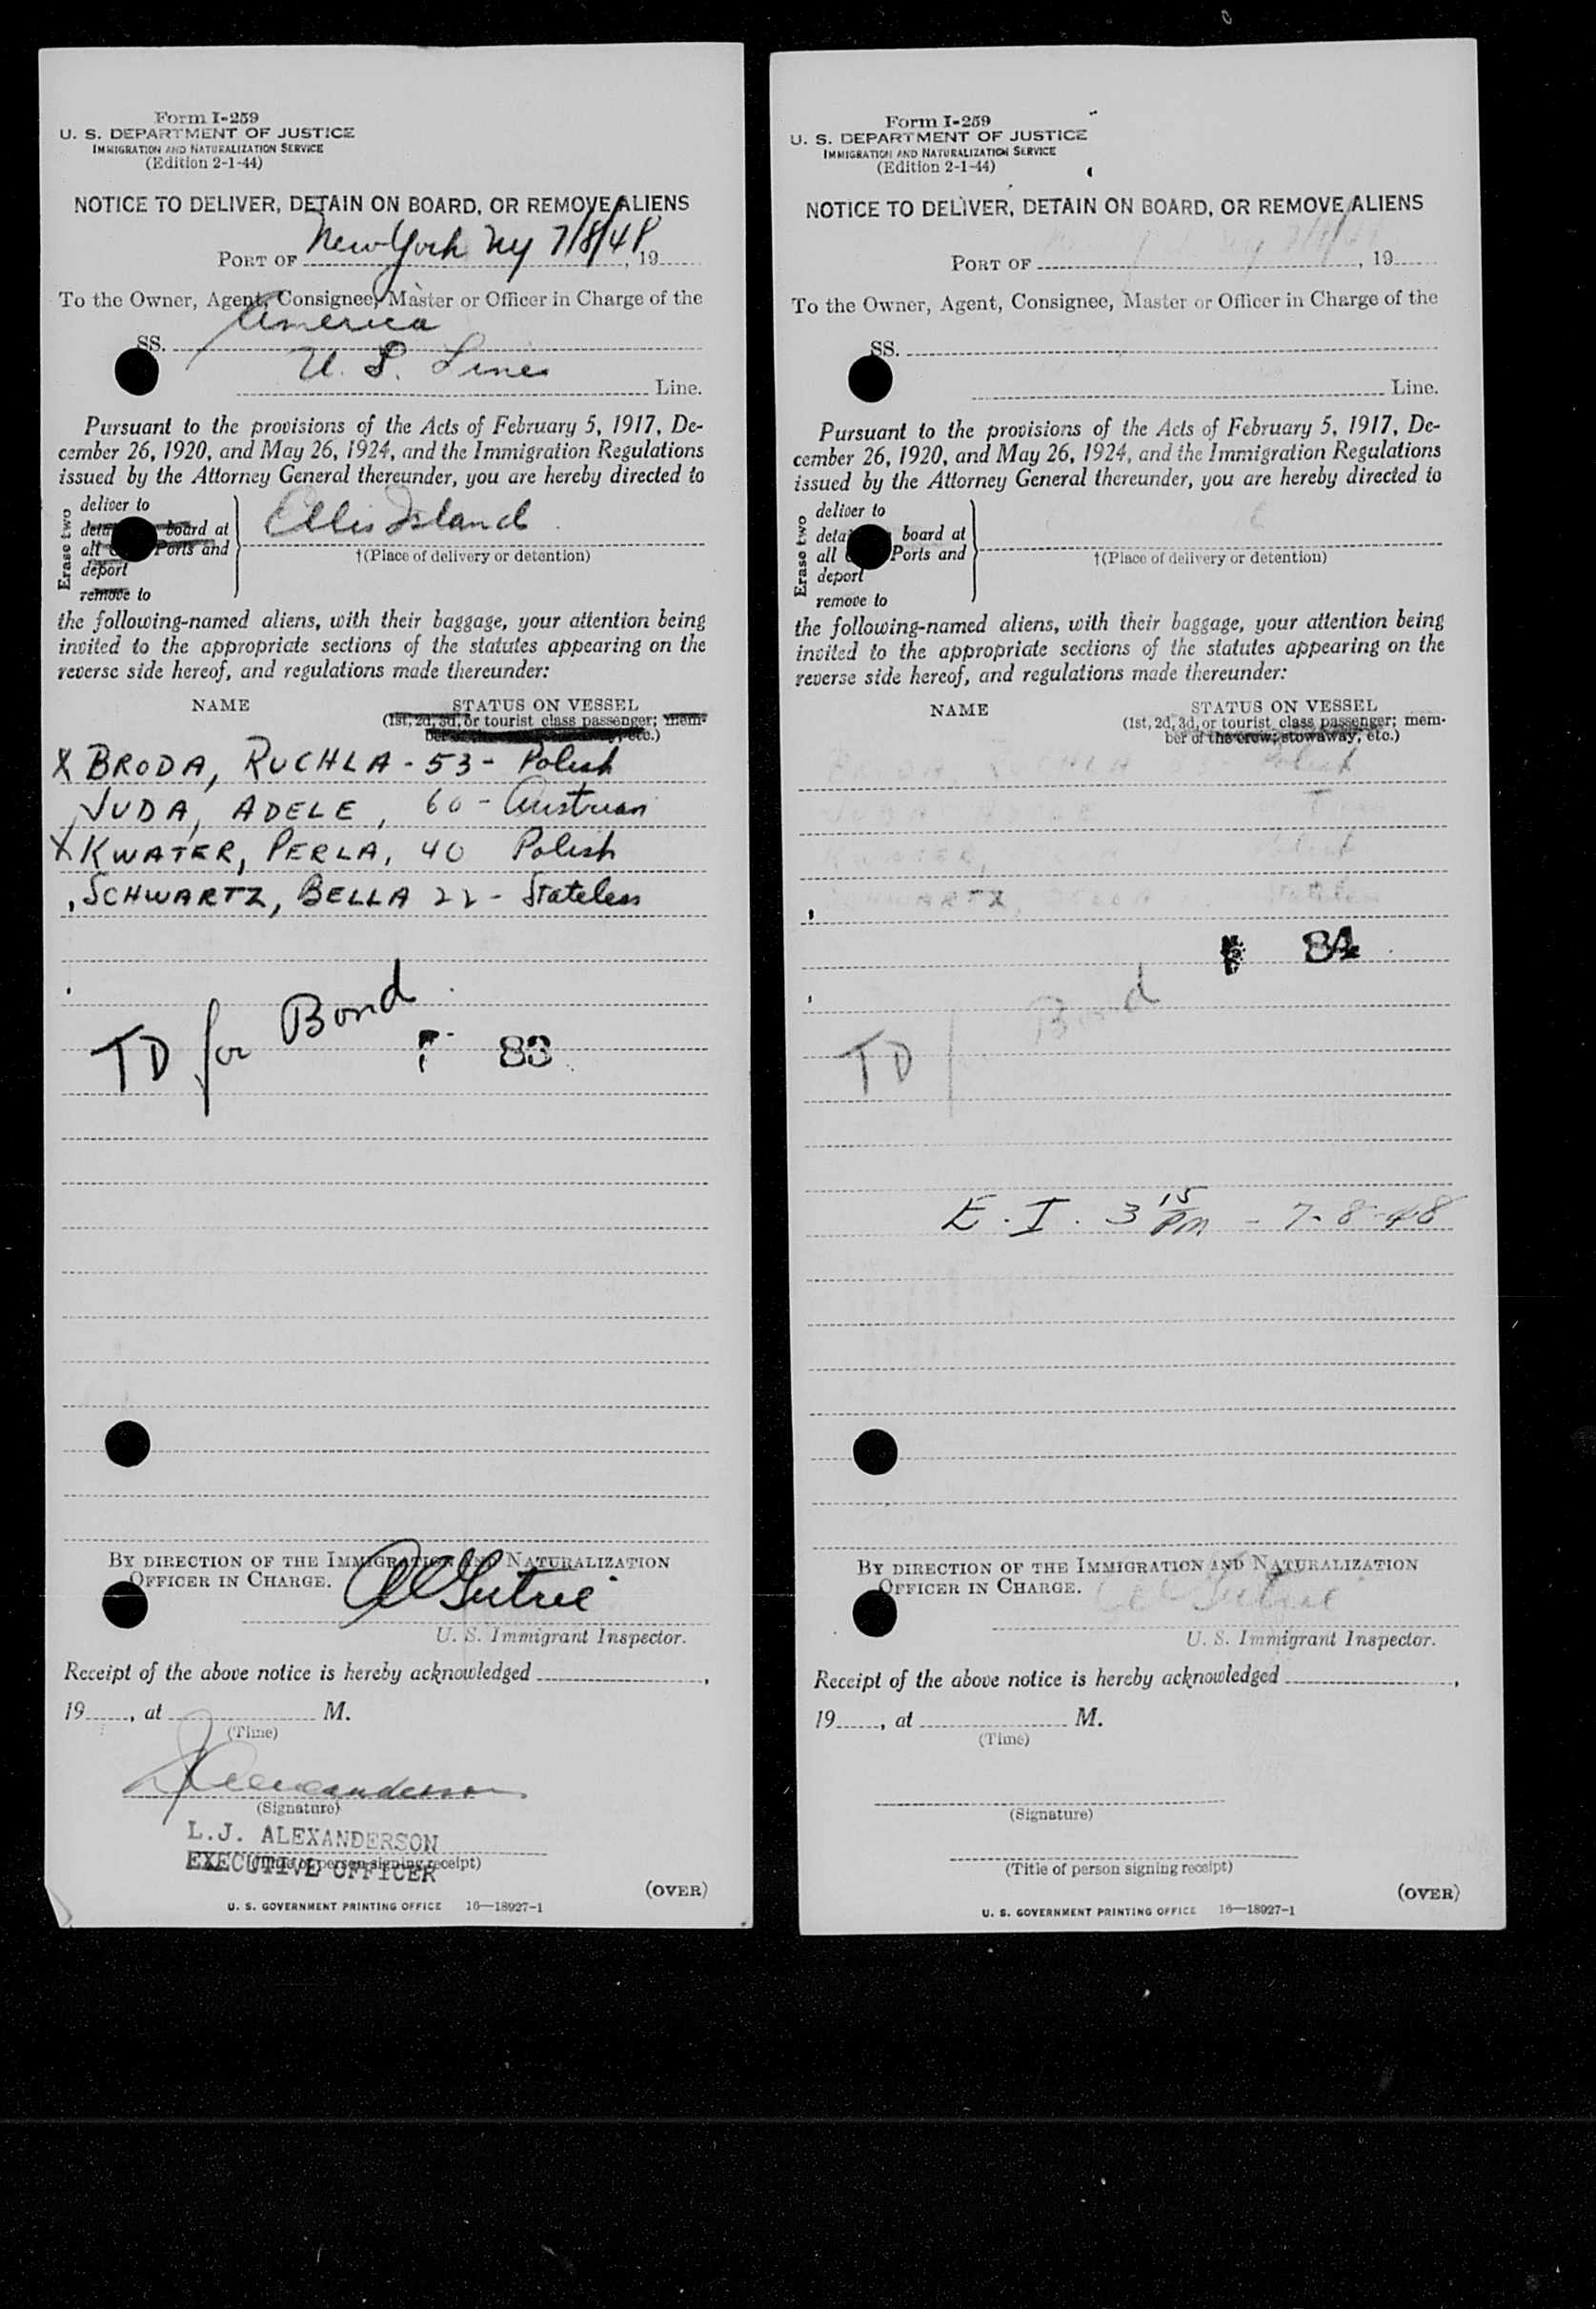 Form I-259
U. S. DEPARTMENT OF JUSTICE
IMMIGRATION AND NATURALIZATION SERVICE
(Edition 2-1-44)
NOTICE TO DELIVER, DETAIN ON BOARD, OR REMOVE ALIENS
PORT OF New York NY 7/8/48, 19
To the Owner, Agent, Consignee, Master or Officer in Charge of the
SS. America
U. S. Lines Line.
Pursuant to the provisions of the Acts of February 5, 1917, De-
cember 26, 1920, and May 26, 1924, and the Immigration Regulations
issued by the Attorney General thereunder, you are hereby directed to
Erase two
deliver to
board at
all Ports and
deport
remove to
Ellis Island
†(Place of delivery or detention)
the following-named aliens, with their baggage, your attention being
invited to the appropriate sections of the statutes appearing on the
reverse side hereof, and regulations made thereunder:
NAME STATUS ON VESSEL
(1st, 2d, 3d, or tourist class passenger; mem-
etc.)
X BRODA, RUCHLA - 53 - Polish
JUDA, ADELE, 60 - Austrian
X KWATER, PERLA, 40 Polish
SCHWARTZ, BELLA 22 - Stateless
TD for Bond
83
BY DIRECTION OF THE IMMIGRATION AND NATURALIZATION
OFFICER IN CHARGE.
U. S. Immigrant Inspector.
Receipt of the above notice is hereby acknowledged ,
19 , at M.
(Time)
(Signature)
L.J. ALEXANDERSON
EXECUTIVE OFFICER
(Title of person signing receipt)
(OVER)
U. S. GOVERNMENT PRINTING OFFICE 16—18927-1
Form I-259
U. S. DEPARTMENT OF JUSTICE
IMMIGRATION AND NATURALIZATION SERVICE
(Edition 2-1-44)
NOTICE TO DELIVER, DETAIN ON BOARD, OR REMOVE ALIENS
PORT OF , 19
To the Owner, Agent, Consignee, Master or Officer in Charge of the
SS.
Line.
Pursuant to the provisions of the Acts of February 5, 1917, De-
cember 26, 1920, and May 26, 1924, and the Immigration Regulations
issued by the Attorney General thereunder, you are hereby directed to
Erase two
deliver to
board at
all Ports and
deport
remove to
†(Place of delivery or detention)
the following-named aliens, with their baggage, your attention being
invited to the appropriate sections of the statutes appearing on the
reverse side hereof, and regulations made thereunder:
NAME STATUS ON VESSEL
(1st, 2d, 3d, or tourist class passenger; mem-
ber of the crew; stowaway, etc.)
84
TD Bond
E. I. 3 15 PM - 7-8-48
BY DIRECTION OF THE IMMIGRATION AND NATURALIZATION
OFFICER IN CHARGE.
U. S. Immigrant Inspector.
Receipt of the above notice is hereby acknowledged ,
19 , at M.
(Time)
(Signature)
(Title of person signing receipt)
(OVER)
U. S. GOVERNMENT PRINTING OFFICE 16—18927-1